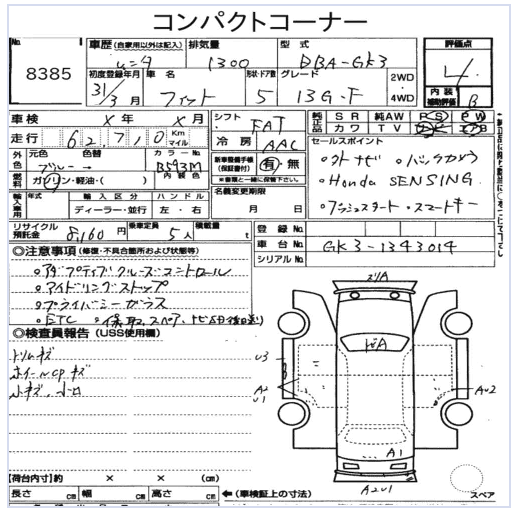 コンパクトコーナー
No. 8385
車歴 (自家用以外は記入) 排気量 1300 型式 DBA-GK3
評価点 4
初度登録年月 31/3月 車名 フィット 形状・ドア数 5 グレード 13G・F 2WD 4WD
内装補助評価 B
車検 × 年 × 月 シフト FAT
純正品 SR 純AW PS PW カワ TV
走行 62,710 Km マイル 冷房 AAC
セールスポイント
外色 元色 ブルー→ 色替 カラーNo. B593M 内装色
新車整備手帳(保証書付) 有・無 ※書類と一緒に保管下さい
・外ナビ ・バックカメラ
燃料 ガソリン・軽油・( )
・Honda SENSING
輸入車用 年式 輸入区分 ディーラー・並行 ハンドル 左・右
名義変更期限 月 日
・プッシュスタート・スマートキー
リサイクル預託金 8,160円 乗車定員 5人 積載量 t
登録No.
車台No. GK3-1343014
シリアルNo.
◎注意事項 (修復・不具合箇所および状態等)
・アダプティブクルーズコントロール
・アイドリングストップ
・プライバシーガラス
・ETC ・保、取、スペア、ナビ
◎検査員報告 (USS使用欄)
トリムキズ
ホイールCPキズ
小キズ、小凹
U3
A2
U1
AU2
A1
A2U1
【荷台内寸】約 × × (cm)
長さ cm 幅 cm 高さ cm ←(車検証上の寸法)
スペア